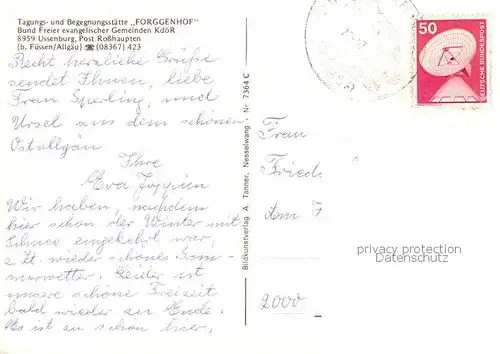 Tagungs- und Begegnungsstätte „FORGGENHOF"
Bund Freier evangelischer Gemeinden KdöR
8959 Ussenburg, Post Roßhaupten
(b. Füssen/Allgäu) ☎ (08367) 423
Recht herzliche Grüße
sendet Ihnen, liebe
Frau Sperling, und
Ursel aus dem schönen
Ostallgäu
Ihre
Eva
Wir haben, nachdem
hier schon der Winter mit
Schnee eingekehrt war,
z. Zt. wieder schönes Som-
merwetter. Leider ist
unsere schöne Freizeit
bald wieder zu Ende.
Es ist zu schön hier,
Bildkunstverlag A. Tanner, Nesselwang Nr 7364 C
50
DEUTSCHE BUNDESPOST
Frau
Fried
dem
2000
privacy protection
Datenschutz